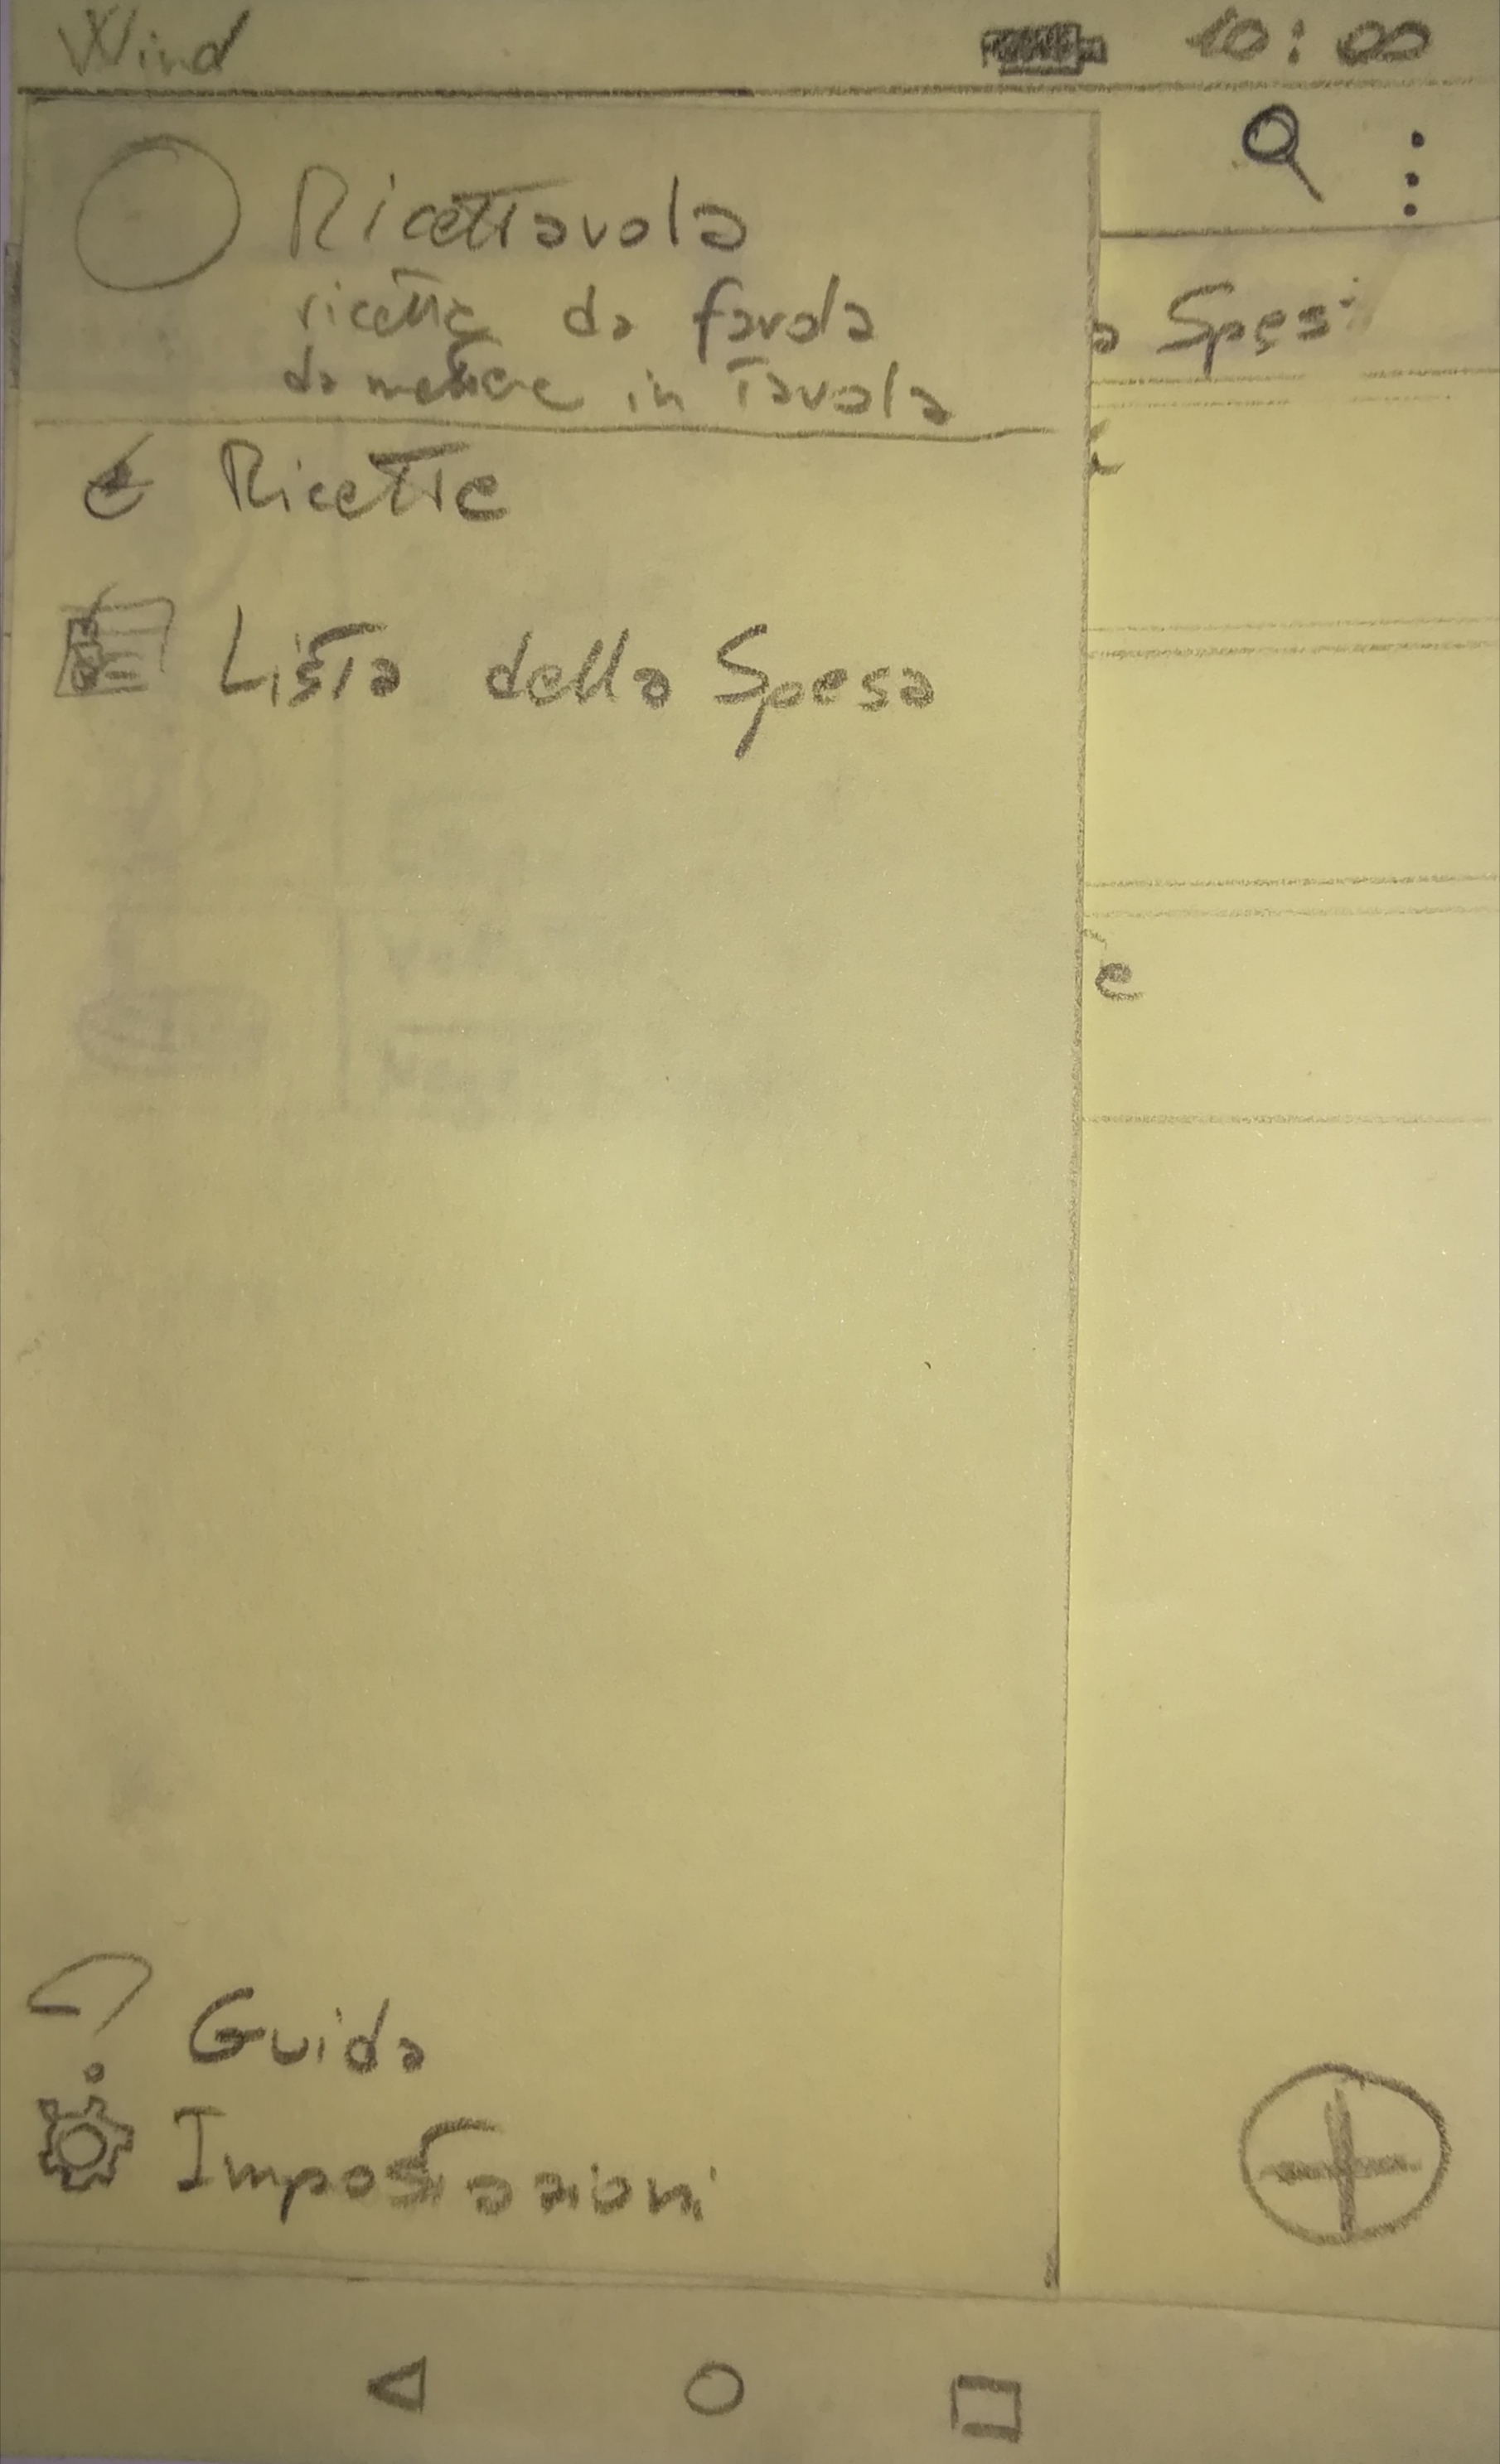 Wind 10:00
Ricettavola
ricette da favola
da mettere in Tavola
a Spesa
Ricette
Lista della Spesa
e
Guida
Impostazioni